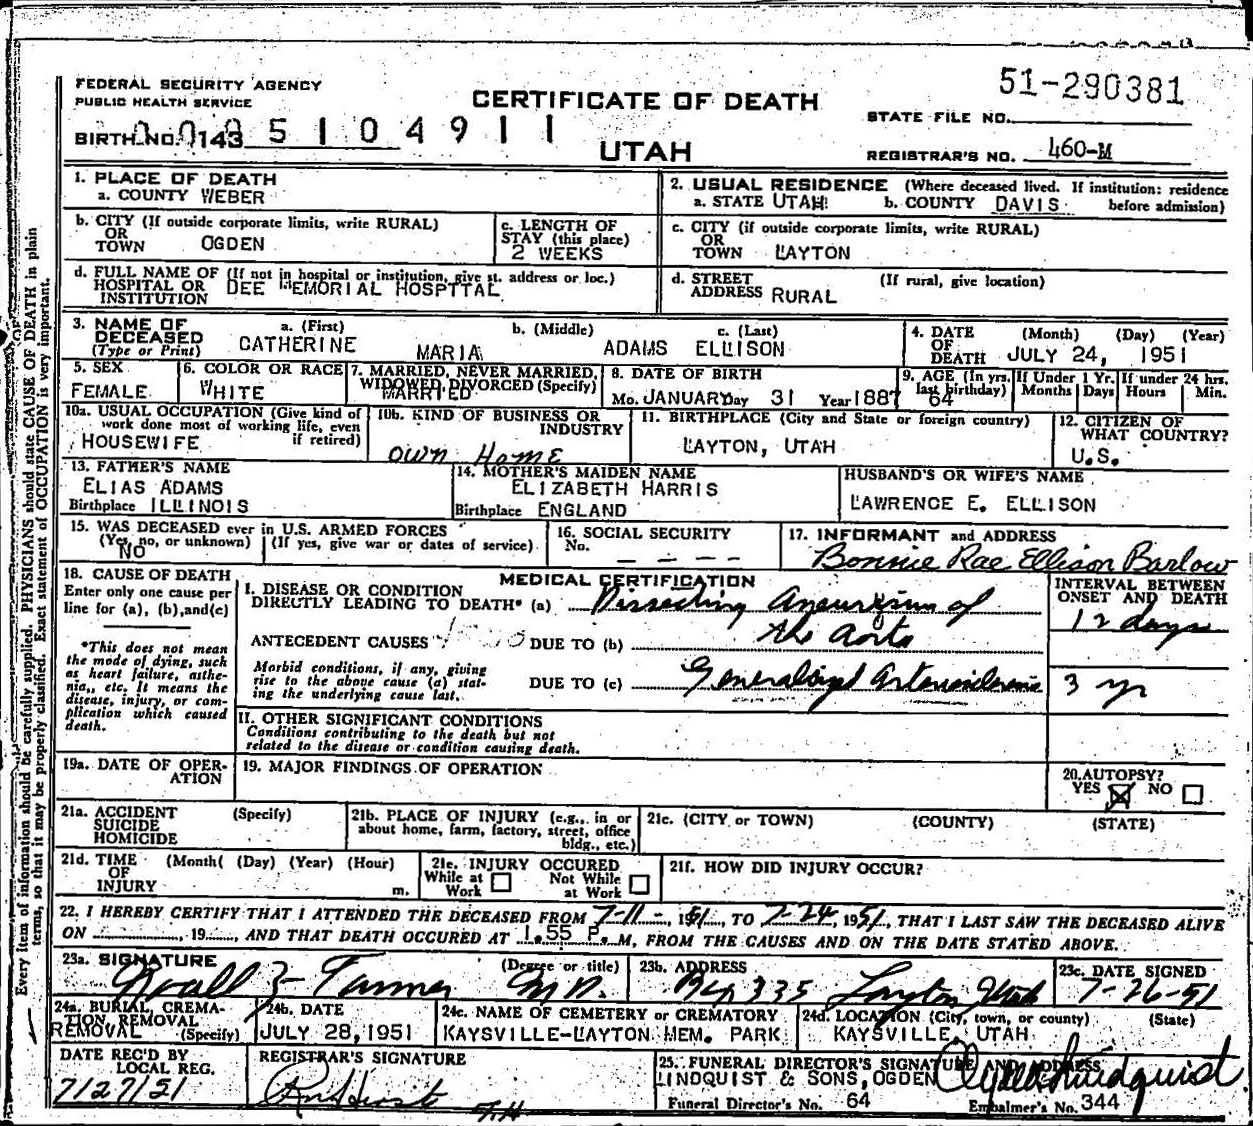 51-290381
FEDERAL SECURITY AGENCY
PUBLIC HEALTH SERVICE
CERTIFICATE OF DEATH
STATE FILE NO.
BIRTH NO. 143 5 1 0 4 9 1 1
UTAH
REGISTRAR'S NO. 460-M
1. PLACE OF DEATH
a. COUNTY WEBER
2. USUAL RESIDENCE (Where deceased lived. If institution: residence before admission)
a. STATE UTAH b. COUNTY DAVIS
b. CITY (If outside corporate limits, write RURAL)
OR
TOWN OGDEN
c. LENGTH OF
STAY (this place)
2 WEEKS
c. CITY (if outside corporate limits, write RURAL)
OR
TOWN LAYTON
d. FULL NAME OF (If not in hospital or institution, give st. address or loc.)
HOSPITAL OR
INSTITUTION DEE MEMORIAL HOSPTTAL
d. STREET (If rural, give location)
ADDRESS RURAL
3. NAME OF
DECEASED
(Type or Print)
a. (First) b. (Middle) c. (Last)
CATHERINE MARIA ADAMS ELLISON
4. DATE (Month) (Day) (Year)
OF
DEATH JULY 24, 1951
5. SEX
FEMALE
6. COLOR OR RACE
WHITE
7. MARRIED, NEVER MARRIED,
WIDOWED, DIVORCED (Specify)
MARRIED
8. DATE OF BIRTH
Mo. JANUARY Day 31 Year 1887
9. AGE (In yrs. last birthday)
64
If Under 1 Yr.
Months Days
If under 24 hrs.
Hours Min.
10a. USUAL OCCUPATION (Give kind of
work done most of working life, even
if retired)
HOUSEWIFE
10b. KIND OF BUSINESS OR
INDUSTRY
OWN HOME
11. BIRTHPLACE (City and State or foreign country)
LAYTON, UTAH
12. CITIZEN OF
WHAT COUNTRY?
U.S.
13. FATHER'S NAME
ELIAS ADAMS
Birthplace ILLINOIS
14. MOTHER'S MAIDEN NAME
ELIZABETH HARRIS
Birthplace ENGLAND
HUSBAND'S OR WIFE'S NAME
LAWRENCE E. ELLISON
15. WAS DECEASED ever in U.S. ARMED FORCES
(Yes, no, or unknown) (If yes, give war or dates of service)
NO
16. SOCIAL SECURITY
No. – – – –
17. INFORMANT and ADDRESS
Bonnie Rae Ellison Barlow
18. CAUSE OF DEATH
Enter only one cause per
line for (a), (b), and (c)
*This does not mean
the mode of dying, such
as heart failure, asthe-
nia, etc. It means the
disease, injury, or com-
plication which caused
death.
MEDICAL CERTIFICATION
I. DISEASE OR CONDITION
DIRECTLY LEADING TO DEATH* (a) Dissecting Aneurism of
ANTECEDENT CAUSES DUE TO (b) the Aorta
Morbid conditions, if any, giving
rise to the above cause (a) stat-
ing the underlying cause last.
DUE TO (c) Generalized Arteriosclerosis
INTERVAL BETWEEN
ONSET AND DEATH
12 days
3 yr
II. OTHER SIGNIFICANT CONDITIONS
Conditions contributing to the death but not
related to the disease or condition causing death.
19a. DATE OF OPER-
ATION
19. MAJOR FINDINGS OF OPERATION
20. AUTOPSY?
YES ☒ NO ☐
21a. ACCIDENT (Specify)
SUICIDE
HOMICIDE
21b. PLACE OF INJURY (e.g., in or
about home, farm, factory, street, office
bldg., etc.)
21c. (CITY or TOWN) (COUNTY) (STATE)
21d. TIME (Month( (Day) (Year) (Hour)
OF
INJURY m.
21e. INJURY OCCURED
While at Work ☐ Not While at Work ☐
21f. HOW DID INJURY OCCUR?
22. I HEREBY CERTIFY THAT I ATTENDED THE DECEASED FROM 7-11-, 1951, TO 7-24, 1951, THAT I LAST SAW THE DECEASED ALIVE
ON , 19 , AND THAT DEATH OCCURED AT 1.55 P. M, FROM THE CAUSES AND ON THE DATE STATED ABOVE.
23a. SIGNATURE (Degree or title)
Noall Z Tanner M.D.
23b. ADDRESS
Box 335 Layton Utah
23c. DATE SIGNED
7-26-51
24a. BURIAL, CREMA-
TION, REMOVAL
REMOVAL (Specify)
24b. DATE
JULY 28, 1951
24c. NAME OF CEMETERY or CREMATORY
KAYSVILLE-LAYTON MEM. PARK
24d. LOCATION (City, town, or county) (State)
KAYSVILLE, UTAH
DATE REC'D BY
LOCAL REG.
7/27/51
REGISTRAR'S SIGNATURE
25. FUNERAL DIRECTOR'S SIGNATURE AND ADDRESS
LINDQUIST & SONS, OGDEN
Clyde Lindquist
Funeral Director's No. 64
Embalmer's No. 344
Every item of information should be carefully supplied. PHYSICIANS should state CAUSE OF DEATH in plain
terms, so that it may be properly classified. Exact statement of OCCUPATION is very important.